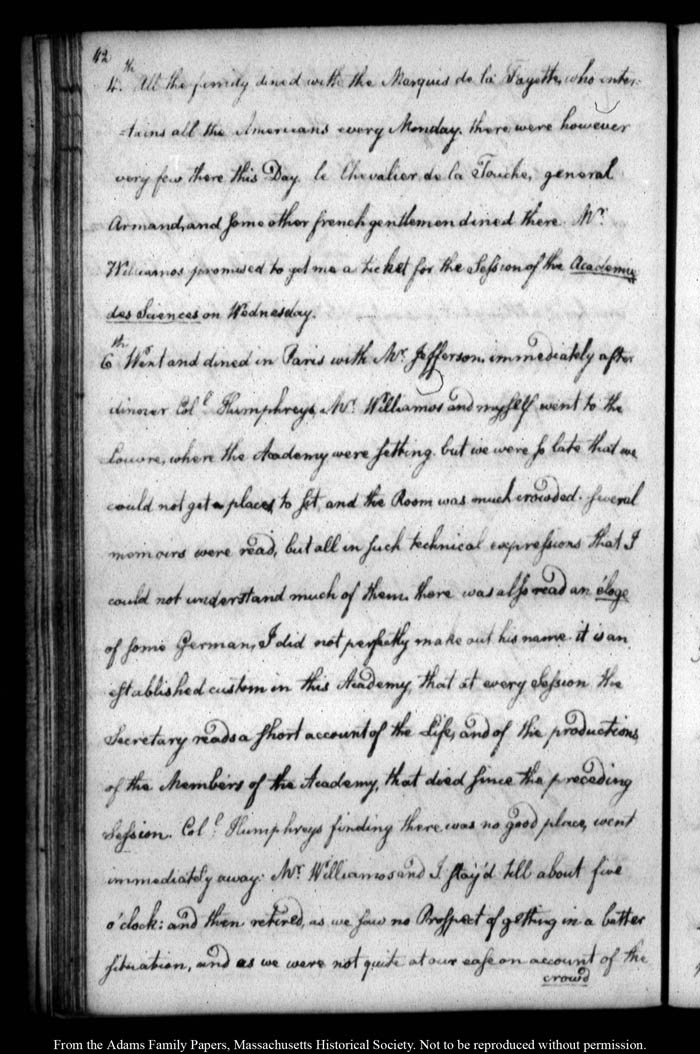 42
4.th All the family dined with the Marquis de la Fayette, who enter-
-tains all the Americans every Monday. there were however
very few there this Day. le Chevalier de la Touche, general
Armand, and some other french gentlemen dined there. Mr.
Williamos promised to get me a ticket for the Session of the Academie
des Sciences on Wednesday.
6th Went and dined in Paris with Mr. Jefferson. immediately after
dinner Coll. Humphreys, Mr. Williamos and myself went to the
Louvre, where the Academy were setting. but we were so late that we
could not get places to sit, and the Room was much crowded. several
memoirs were read, but all in such technical expressions that I
could not understand much of them. there was also read an éloge
of some German, I did not perfectly make out his name. it is an
established custom in this Academy, that at every Session the
Secretary reads a short account of the Life, and of the productions,
of the Members of the Academy, that died since the preceding
Session. Coll. Humphreys finding there was no good place, went
immediately away: Mr. Williamos and I stay'd till about five
o'clock: and then retired, as we saw no Prospect of getting in a better
situation, and as we were not quite at our ease on account of the
crowd
From the Adams Family Papers, Massachusetts Historical Society. Not to be reproduced without permission.